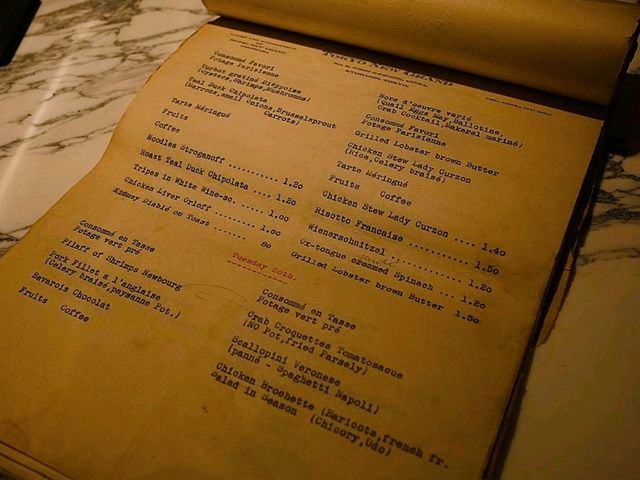 TOKYO NEW GRAND
Consommé Favori
Potage Parisienne
Turbot gratiné Dieppoise
(Oysters,Shrimps,Mushrooms)
Teal Duck Chipolata
(Marrons,small Onions,Brusselsprout
Carrots)
Tarte Méringué
Fruits
Coffee
Noodles Stroganoff ........... 1.20
Roast Teal Duck Chipolata .... 1.20
Tripes in White Wine-sc. ..... 1.00
Chicken Liver Orloff ......... 1.00
Kidney Diablé on Toast ....... 80
Hors d'oeuvre varié
(Quail Eggs May,Ballotine,
Crab Cocktail,Makarel mariné)
Consommé Favori
Potage Parisienne
Grilled Lobster brown Butter
Chicken Stew Lady Curzon
(Rice,Celery braisé)
Tarte Méringué
Fruits Coffee
Chicken Stew Lady Curzon .... 1.40
Risotto Francaise ........... 1.50
Wienerschnitzel ............. 1.20
Ox-tongue creamed Spinach ... 1.20
Grilled Lobster brown Butter 1.50
Tuesday 20th.
Consommé en Tasse
Potage vert pré
Pilaff of Shrimps Newbourg
Pork Fillet à l'anglaise
(Celery braisé,paysanne Pot.)
Bavarois Chocolat
Fruits Coffee
Consommé en Tasse
Potage vert pré
Crab Croquettes Tomatosacue
(NO Pot,fried Parsely)
Scallopini Veronese
(panné - Spaghetti Napoli)
Chicken Brochette (Haricots,french fr.
Salad in Season (Chicory,Udo)